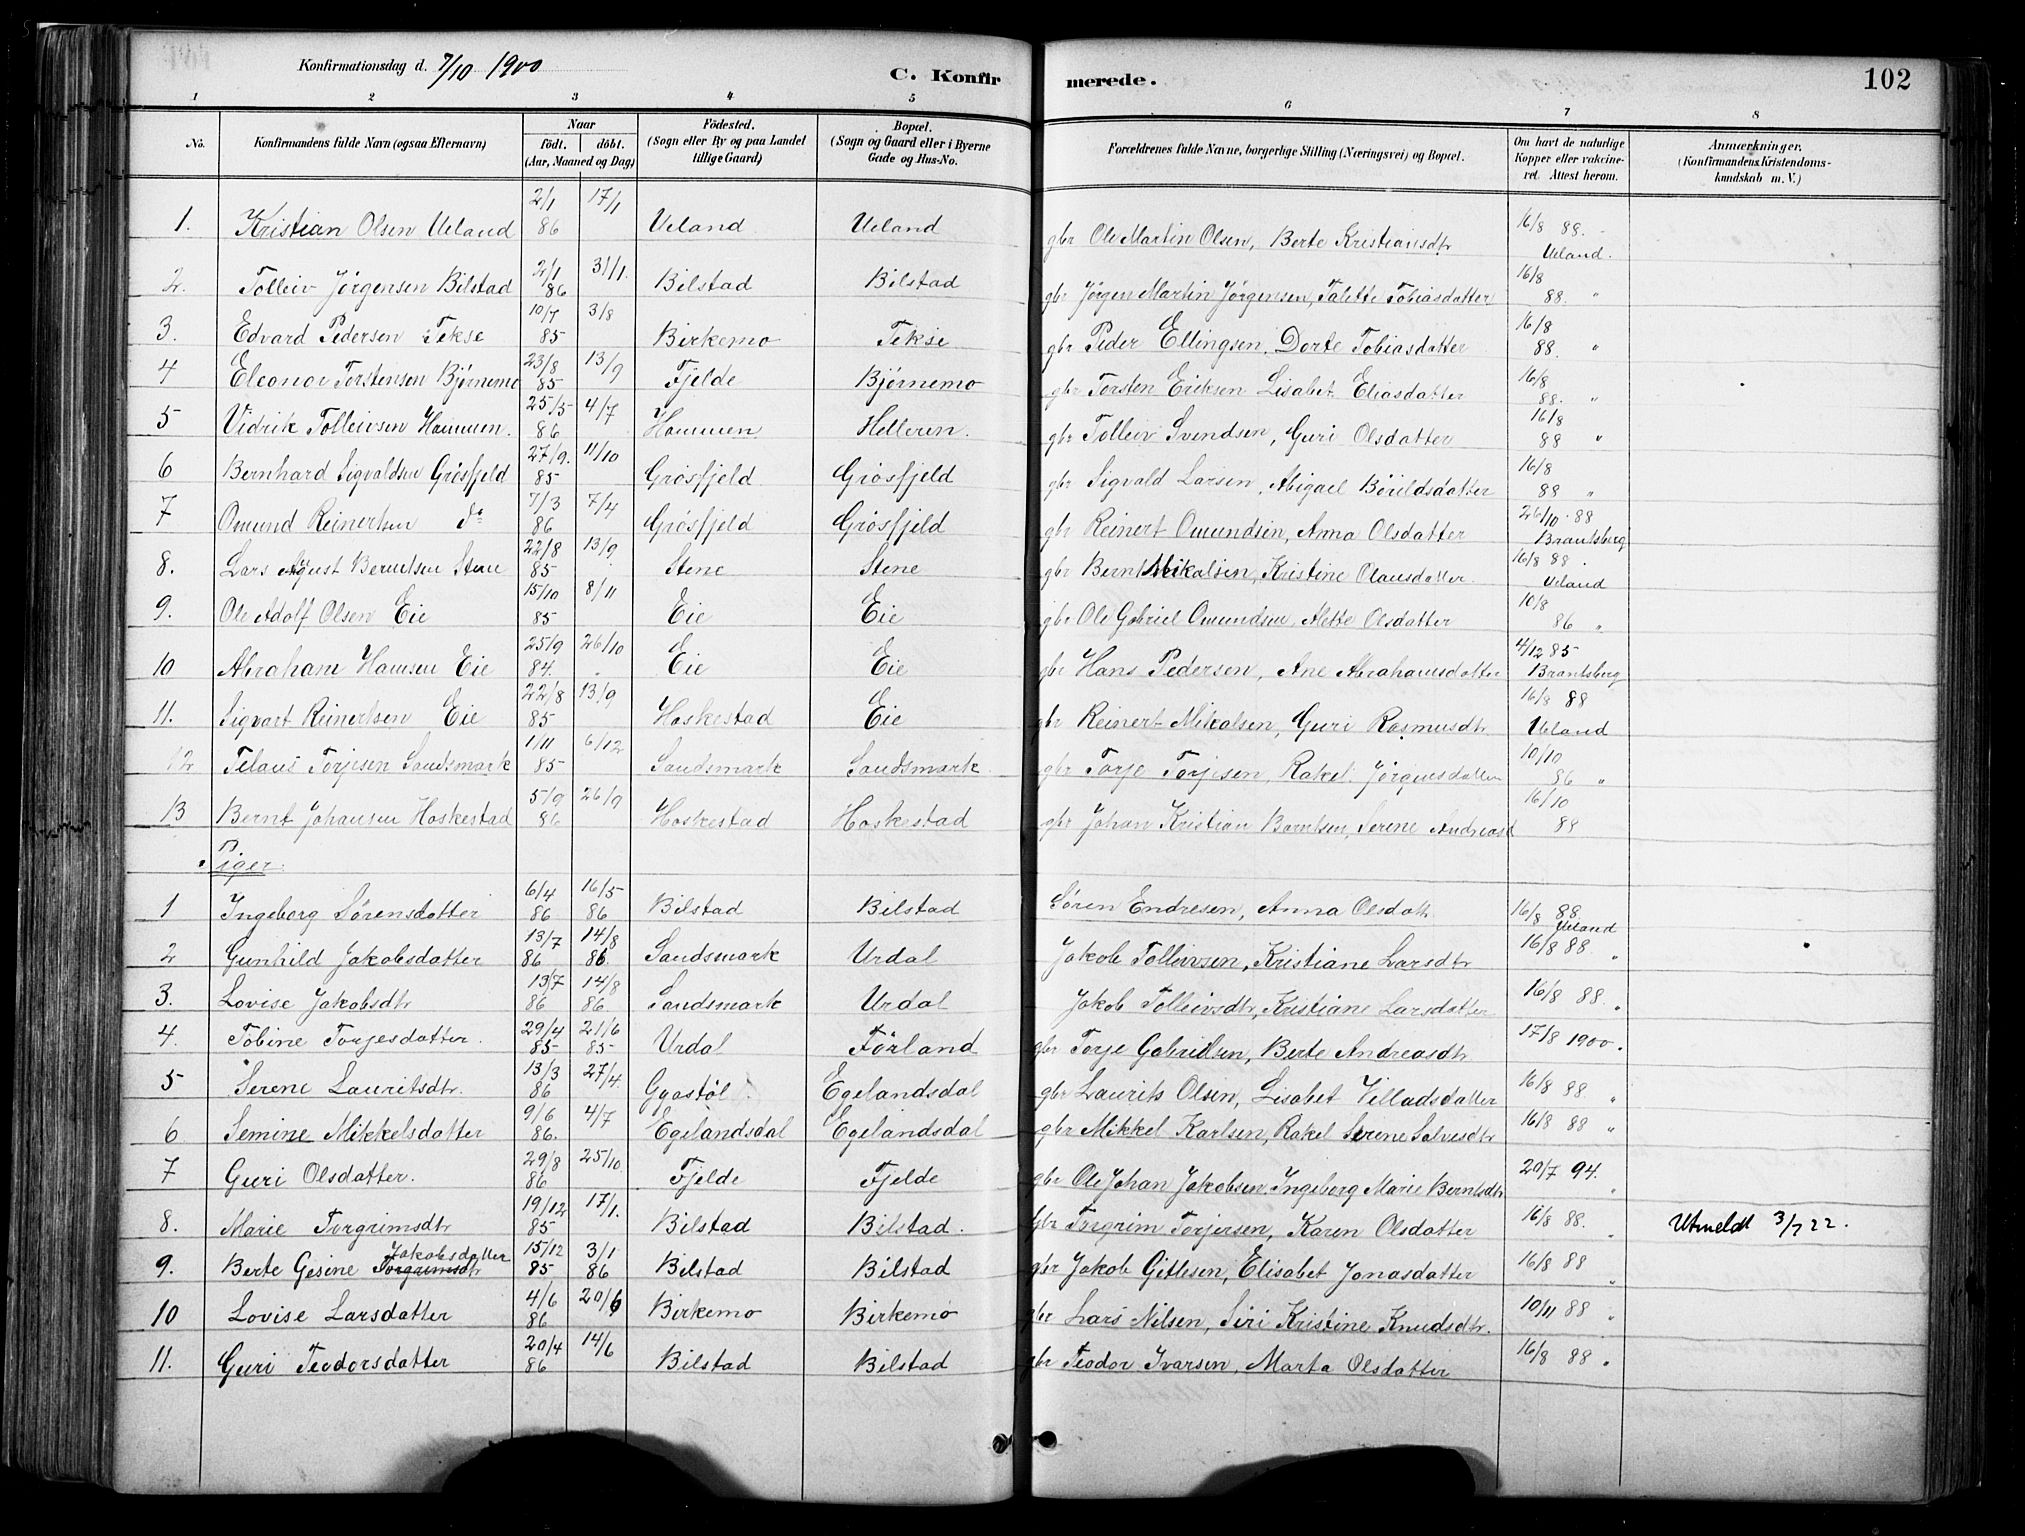 Konfirmationsdag d. 7/10 1900
C. Konfirmerede.
102
1 2 3 4 5 6 7 8
No.
Konfirmandens fulde Navn (ogsaa Efternavn)
Naar
födt. döbt.
(Aar, Maaned og Dag)
Födested.
(Sogn eller By og paa Landet
tillige Gaard)
Bopæl.
(Sogn og Gaard eller i Byerne
Gade og Hus-No.
Forældrenes fulde Navne, borgerlige Stilling (Næringsvei) og Bopæl.
Om havt de naturlige
Kopper eller vakcine-
ret. Attest herom.
Anmærkninger.
(Konfirmandens Kristendoms-
kundskab m. V.)
1. Kristian Olsen Ueland 2/1 86 17/1 Ueland Ueland gbr Ole Martin Olsen, Berte Kristiansdtr 16/8 88. Ueland.
2. Tolleiv Jørgensen Bilstad 2/1 86 31/1. Bilstad Bilstad gbr Jørgen Martin Jørgensen, Talette Tobiasdatter 16/8 88. "
3. Edvard Pedersen Tekse 10/7 85 3/8 Birkemo Tekse gbr Peder Ellingsen, Dorte Tobiasdatter 16/8 88. "
4 Eleonor Torstensen Bjørnemo 23/8 85 13/9 Fjelde Bjørnemo gbr Torsten Eriksen Lisabet Eliasdatter 16/8 88. "
5 Vidrik Tolleivsen Hammen. 25/5 86 4/7 Hammen Helleren. gbr Tolleiv Svendsen, Guri Olsdatter 16/8 88 "
6 Bernhard Sigvaldsen Grøsfjeld 27/9. 85 11/10 Grøsfjeld Grøsfjeld gbr Sigvald Larsen, Abigael Bårildsdatter 16/8 88 "
7 Omund Reinertsen do 7/3 86 7/4 Grøsfjeld Grøsfjeld gbr Reinert Omundsen, Anna Olsdatter 26/10 88 Brantsberg
8. Lars August Berntsen Stene 22/8 85 13/9 Stene Stene gbr Bernt Mikalsen, Kristine Olausdatter. 16/8 88. Ueland
9. Ole Adolf Olsen Eie 15/10 85 8/11 Eie Eie gbr Ole Gabriel Omundsen, Alette Olsdatter 10/8 86 "
10 Abraham Hansen Eie 25/9 84. 26/10 Eie Eie gbr Hans Pedersen, Ane Abrahamsdatter 4/12 85 Brantsberg
11. Sigvart Reinertsen Eie 22/8 85 13/9 Hoskestad Eie gbr Reinert Mikalsen, Guri Rasmusdtr 16/8 88 Ueland
12 Telaus Torjesen Sandsmark 1/11 85 6/12 Sandsmark Sandsmark gbr Torje Torjesen, Rakel Jørgensdatter 10/10 86 "
13 Bernt Johansen Hoskestad 5/9 86 26/9 Hoskestad Hoskestad gbr Johan Kristian Berntsen, Serene Andreasd 16/10 88
Piger.
1 Ingeborg Sørensdatter 6/4 86 16/5 86 Bilstad Bilstad Søren Endresen, Anna Olsdatr 16/8 88. Ueland
2 Gunhild Jakobsdatter 13/7 86 14/8 86 Sandsmark Urdal Jakob Tolleivsen, Kristiane Larsdtr 16/8 88 "
3. Lovise Jakobsdtr 13/7 86 14/8 86 Sandsmark Urdal Jakob Tolleivsdtr, Kristiane Larsdatter 16/8 88. "
4. Tobine Torjesdatter. 29/4 85 21/6 85 Urdal Førland gbr Torje Gabrielsen, Berte Andreasdtr 17/8 1900.
5 Serene Lauritsdtr. 13/3 86 27/4. Gyastøl Egelandsdal gbr Laurits Olsen, Lisabet Villadsdatter 16/8 88 "
6 Semine Mikkelsdatter 9/6 86. 4/7 Egelandsdal Egelandsdal gbr Mikkel Karlsen, Rakel Serene Salvesdtr 16/8 88 "
7 Guri Olsdatter. 29/8 86 25/10. Fjelde Fjelde gbr Ole Johan Jakobsen, Ingeborg Marie Berntsdtr 20/7 94. "
8. Marie Torgrimsdtr 19/12 85 17/1. Bilstad Bilstad. gbr Torgrim Torjersen, Karen Olsdatter 16/8 88. " Utmeldt 3/7 22.
9. Berte Gesine Torgrimsdtr Jakobsdatter 15/12 85 3/1 86 Bilstad Bilstad gbr Jakob Gitlesen, Elisabet Jonasdatter 16/8 88 "
10 Lovise Larsdatter 4/6 86 20/6 Birkemo Birkemo gbr Lars Nilsen, Siri Kristine Knudsdtr. 10/11 88 "
11. Guri Teodorsdatter 20/4 86 14/6 Bilstad Bilstad gbr Teodor Ivarsen, Marta Olsdatter 16/8 88 "